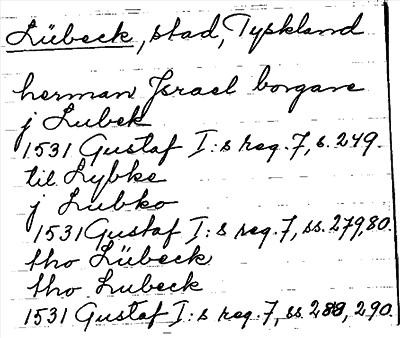 Lübeck, stad, Tyskland
herman Israel borgare
j Lubek
1531 Gustaf I:s reg. 7, s. 249.
til Lybke
j Lubko
1531 Gustaf I:s reg. 7, ss. 279, 80.
tho Lübeck
tho Lubeck
1531 Gustaf I:s reg. 7, ss. 288, 290.